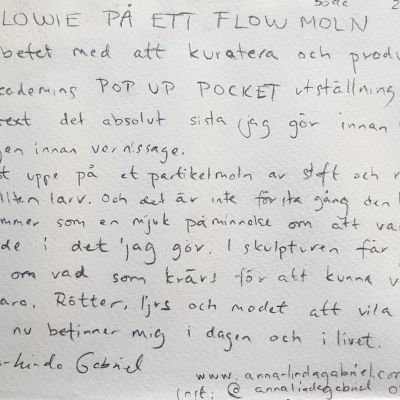 Bodc 2
LOWIE PÅ ETT FLOW MOLN
betet med att kuratera och produ
cademins POP UP POCKET utställning
text det absolut sista jag gör innan
gen innan vernissage.
st uppe på et partikelmoln av stoft och r
liten larv. Och det är inte första gång den l
mmer som en mjuk påminnelse om att va
de i det jag gör. I skulpturen får j
om vad som krävs för att kunna v
ara. Rötter, ljus och modet att vila
nu befinner mig i dagen och i livet.
a-linda Gabriel
www.anna-lindagabriel.com
inst: @annalindagabriel